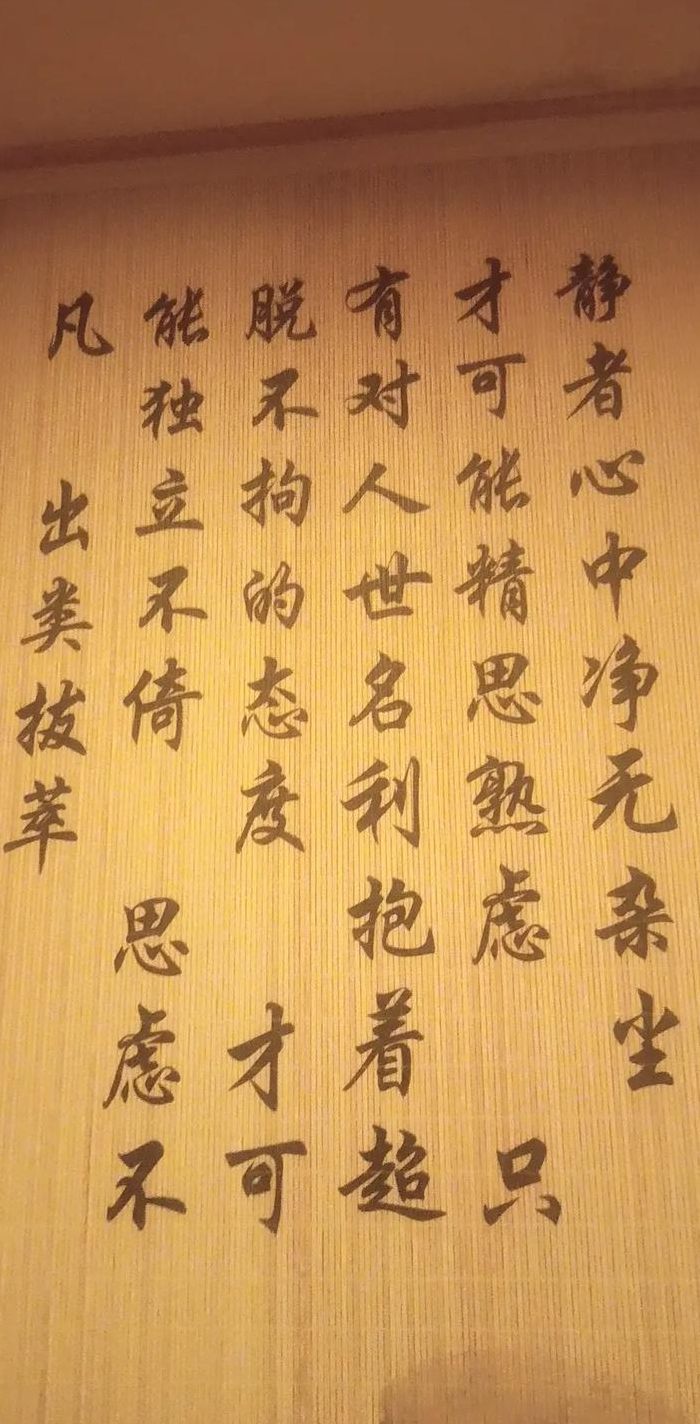 静者心中净无杂尘
才可能精思熟虑 只
有对人世名利抱着超
脱不拘的态度 才可
能独立不倚 思虑不
凡 出类拔萃